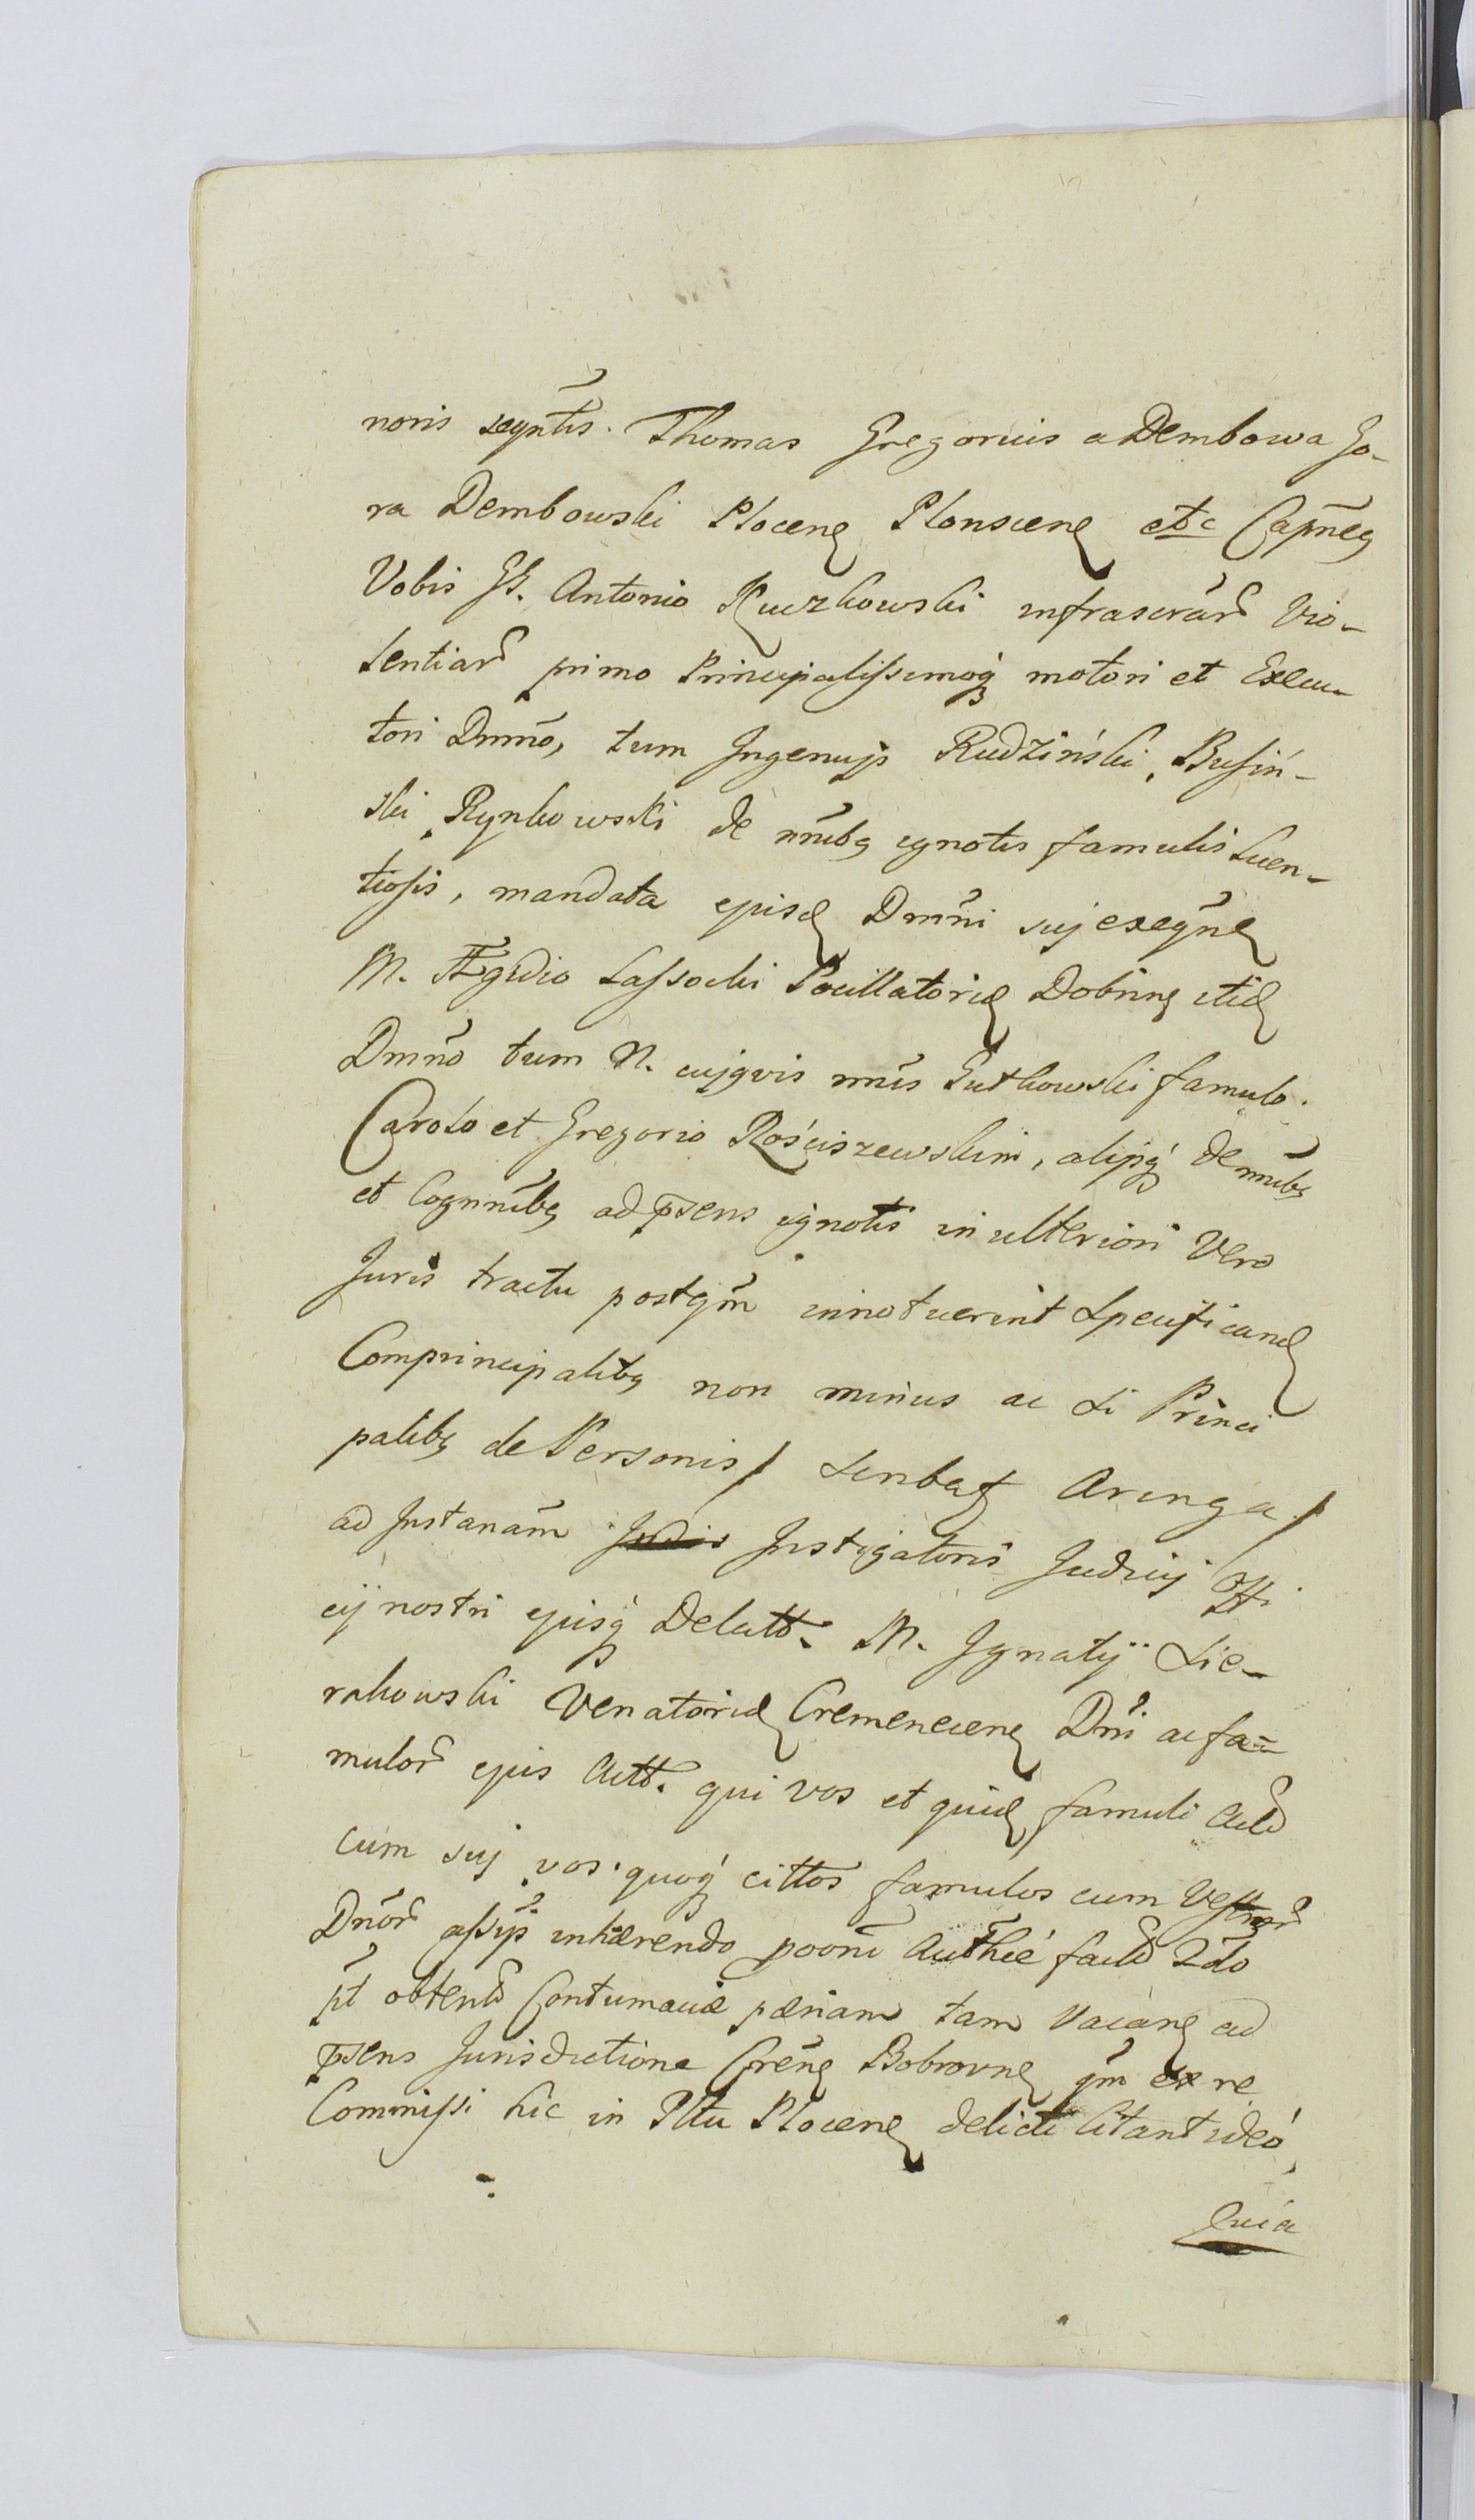 noris seqntis. Thomas Gregorius a Dembowa Go-
ra Dembowski Plocen Plonscen etc Capneq
Vobis G. Antonio Kuczkowski infrascrar Vio-
lentiar primo Principalissimoq motori et Execu-
tori Dmno, tum Ingenujs Rudziński, Busiń-
ski, Rynkowski de nnibq ignotis famulis licen-
tiosis, mandata ejusd Dmni suj exeqn
M. Ægidio Lassocki Pocillatorid Dobrin itid
Dmno tum N. cujqvis nnis Gutkowski famulo.
Carolo et Gregorio Rościszewskim, alijsq de nnibq
et Cognnibq ad psens ignotis in ulteriori Vero
Juris tractu postqm innotuerint specificand
Comprincipalibq non minus ac si Princi
palibq de Personis / Scribat Aringa /
ad Instanam Judis Instigatoris Judicij Offi
cij nostri ejusq Delatt. M. Ignatij Sie-
rakowski Venatorid Cremenecen Dni ac fa-
mulor ejus Actt. qui vos et quid famuli
cum suj vos quoq cittos famulos cum Vestror
Dnor assys inhærendo pooni Authié faciló 2do
pt obtent Contumaciæ pænam tam Vacan ad
psens Jurisdictione Cren Bobrovn qm ex re
Commissi hic in Plttu Plocen delicti Citant ideó,
Quia